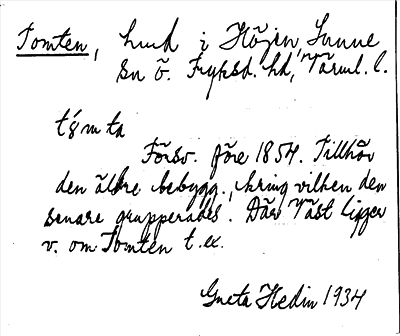 Tomten, hmd i Höjen, Sunne
sn Ö. Fryksd. hd, Värml. l.
tómta
Försv. före 1854. Tillhör
den äldre bebygg., kring vilken den
senare grupperades. Där Väst ligger
v. om Tomten t. ex.
Greta Hedin 1934